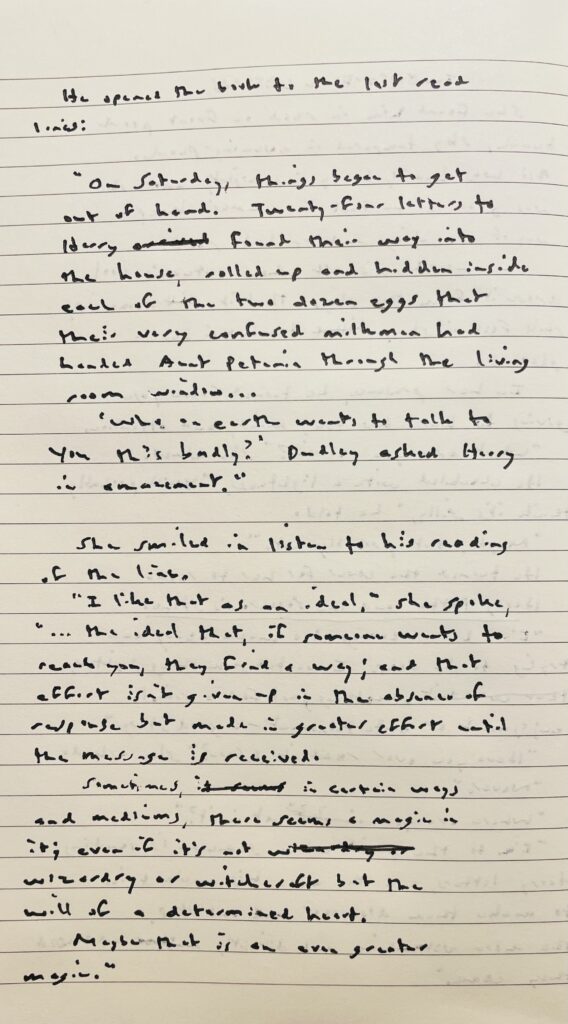 He opened the book to the last read
lines:
"On Saturday, things began to get
out of hand. Twenty-four letters to
Harry found their way into
the house, rolled up and hidden inside
each of the two dozen eggs that
their very confused milkman had
handed Aunt Petunia through the living
room window...
'Who on earth wants to talk to
you this badly?' Dudley asked Harry
in amazement."
She smiled in listen to his reading
of the line.
"I like that as an ideal," she spoke,
"... the ideal that, if someone wants to
reach you, they find a way; and that
effort isn't given up in the absence of
response but made in greater effort until
the message is received.
Sometimes, it seems in certain ways
and mediums, there seems a magic in
it; even if it's not wizardry or
wizardry or witchcraft but the
will of a determined heart.
Maybe that is an even greater
magic."